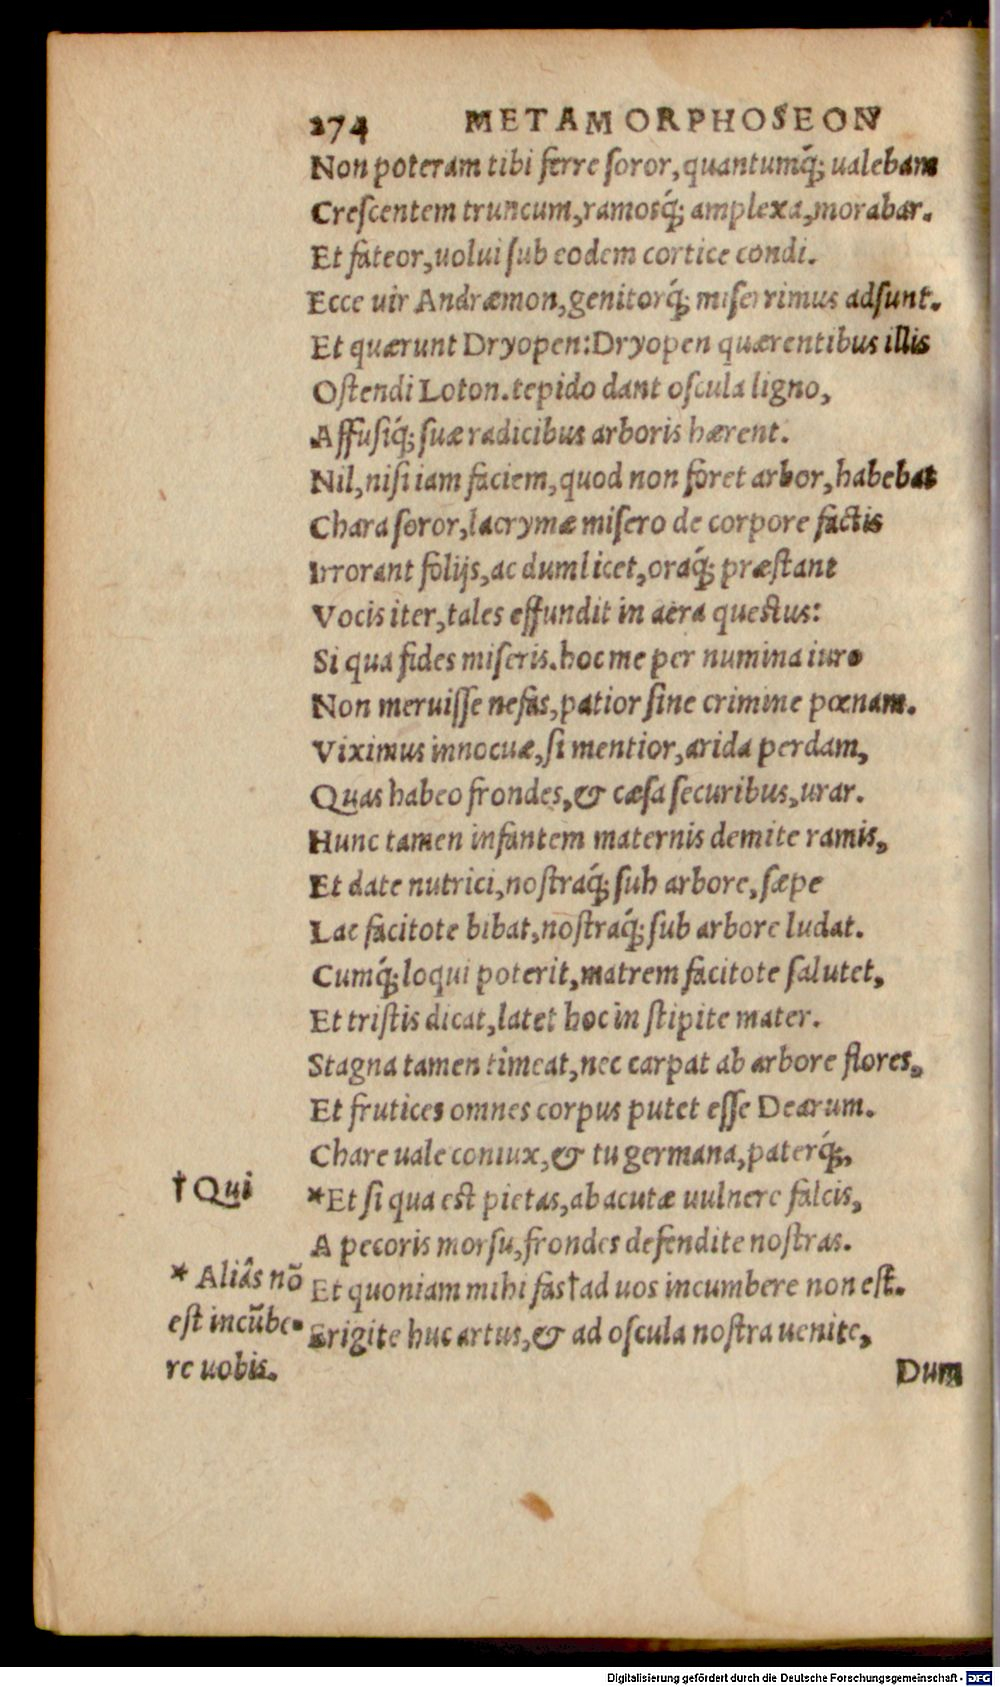 274 METAMORPHOSEON
Non poteram tibi ferre ſoror, quantumq́; ualebam
Creſcentem truncum, ramosq́; amplexa, morabar.
Et fateor, uolui ſub eodem cortice condi.
Ecce uir Andræmon, genitorq́; miſerrimus adſunt.
Et quærunt Dryopen: Dryopen quærentibus illis
Oſtendi Loton. tepido dant oſcula ligno,
Affuſiq́; ſuæ radicibus arboris hærent.
Nil, niſi iam faciem, quod non foret arbor, habebat
Chara ſoror, lacrymæ miſero de corpore factis
Irrorant folijs, ac dum licet, oraq́; præſtant
Vocis iter, tales effundit in aëra queſtus:
Si qua fides miſeris. hoc me per numina iuro
Non meruiſſe nefas, patior ſine crimine pœnam.
Viximus innocuæ, ſi mentior, arida perdam,
Quas habeo frondes, & cæſa ſecuribus, urar.
Hunc tamen infantem maternis demite ramis,
Et date nutrici, noſtraq́; ſub arbore, ſæpe
Lac facitote bibat, noſtraq́; ſub arbore ludat.
Cumq́; loqui poterit, matrem facitote ſalutet,
Et triſtis dicat, latet hoc in ſtipite mater.
Stagna tamen timeat, nec carpat ab arbore flores,
Et frutices omnes corpus putet eſſe Dearum.
Chare uale coniux, & tu germana, paterq́;,
† Qui
*Et ſi qua eſt pietas, ab acutæ uulnere falcis,
A pecoris morſu, frondes defendite noſtras.
Et quoniam mihi fas† ad uos incumbere non eſt.
Erigite huc artus, & ad oſcula noſtra uenite,
* Aliâs nō
eſt incūbe-
re uobis.
Dum
Digitalisierung gefördert durch die Deutsche Forschungsgemeinschaft - DFG